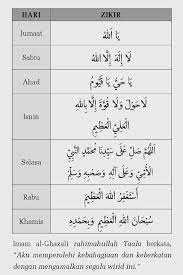 HARI ZIKIR
Jumaat يَا اَللّٰهُ
Sabtu لَا إِلٰهَ إِلَّا اللّٰهُ
Ahad يَا حَيُّ يَا قَيُّوْمُ
Isnin لَا حَوْلَ وَلَا قُوَّةَ إِلَّا بِاللّٰهِ
الْعَلِيِّ الْعَظِيْمِ
Selasa اَللّٰهُمَّ صَلِّ عَلَى سَيِّدِنَا مُحَمَّدٍ النَّبِيِّ
الْأُمِّيِّ وَعَلَى آلِهِ وَصَحْبِهِ وَسَلِّمْ
Rabu أَسْتَغْفِرُ اللّٰهَ الْعَظِيْمَ
Khamis سُبْحَانَ اللّٰهِ الْعَظِيْمِ وَبِحَمْدِهِ
Imam al-Ghazali rahimahullah Taala berkata,
"Aku memperolehi kebahagiaan dan keberkatan
dengan mengamalkan segala wirid ini."